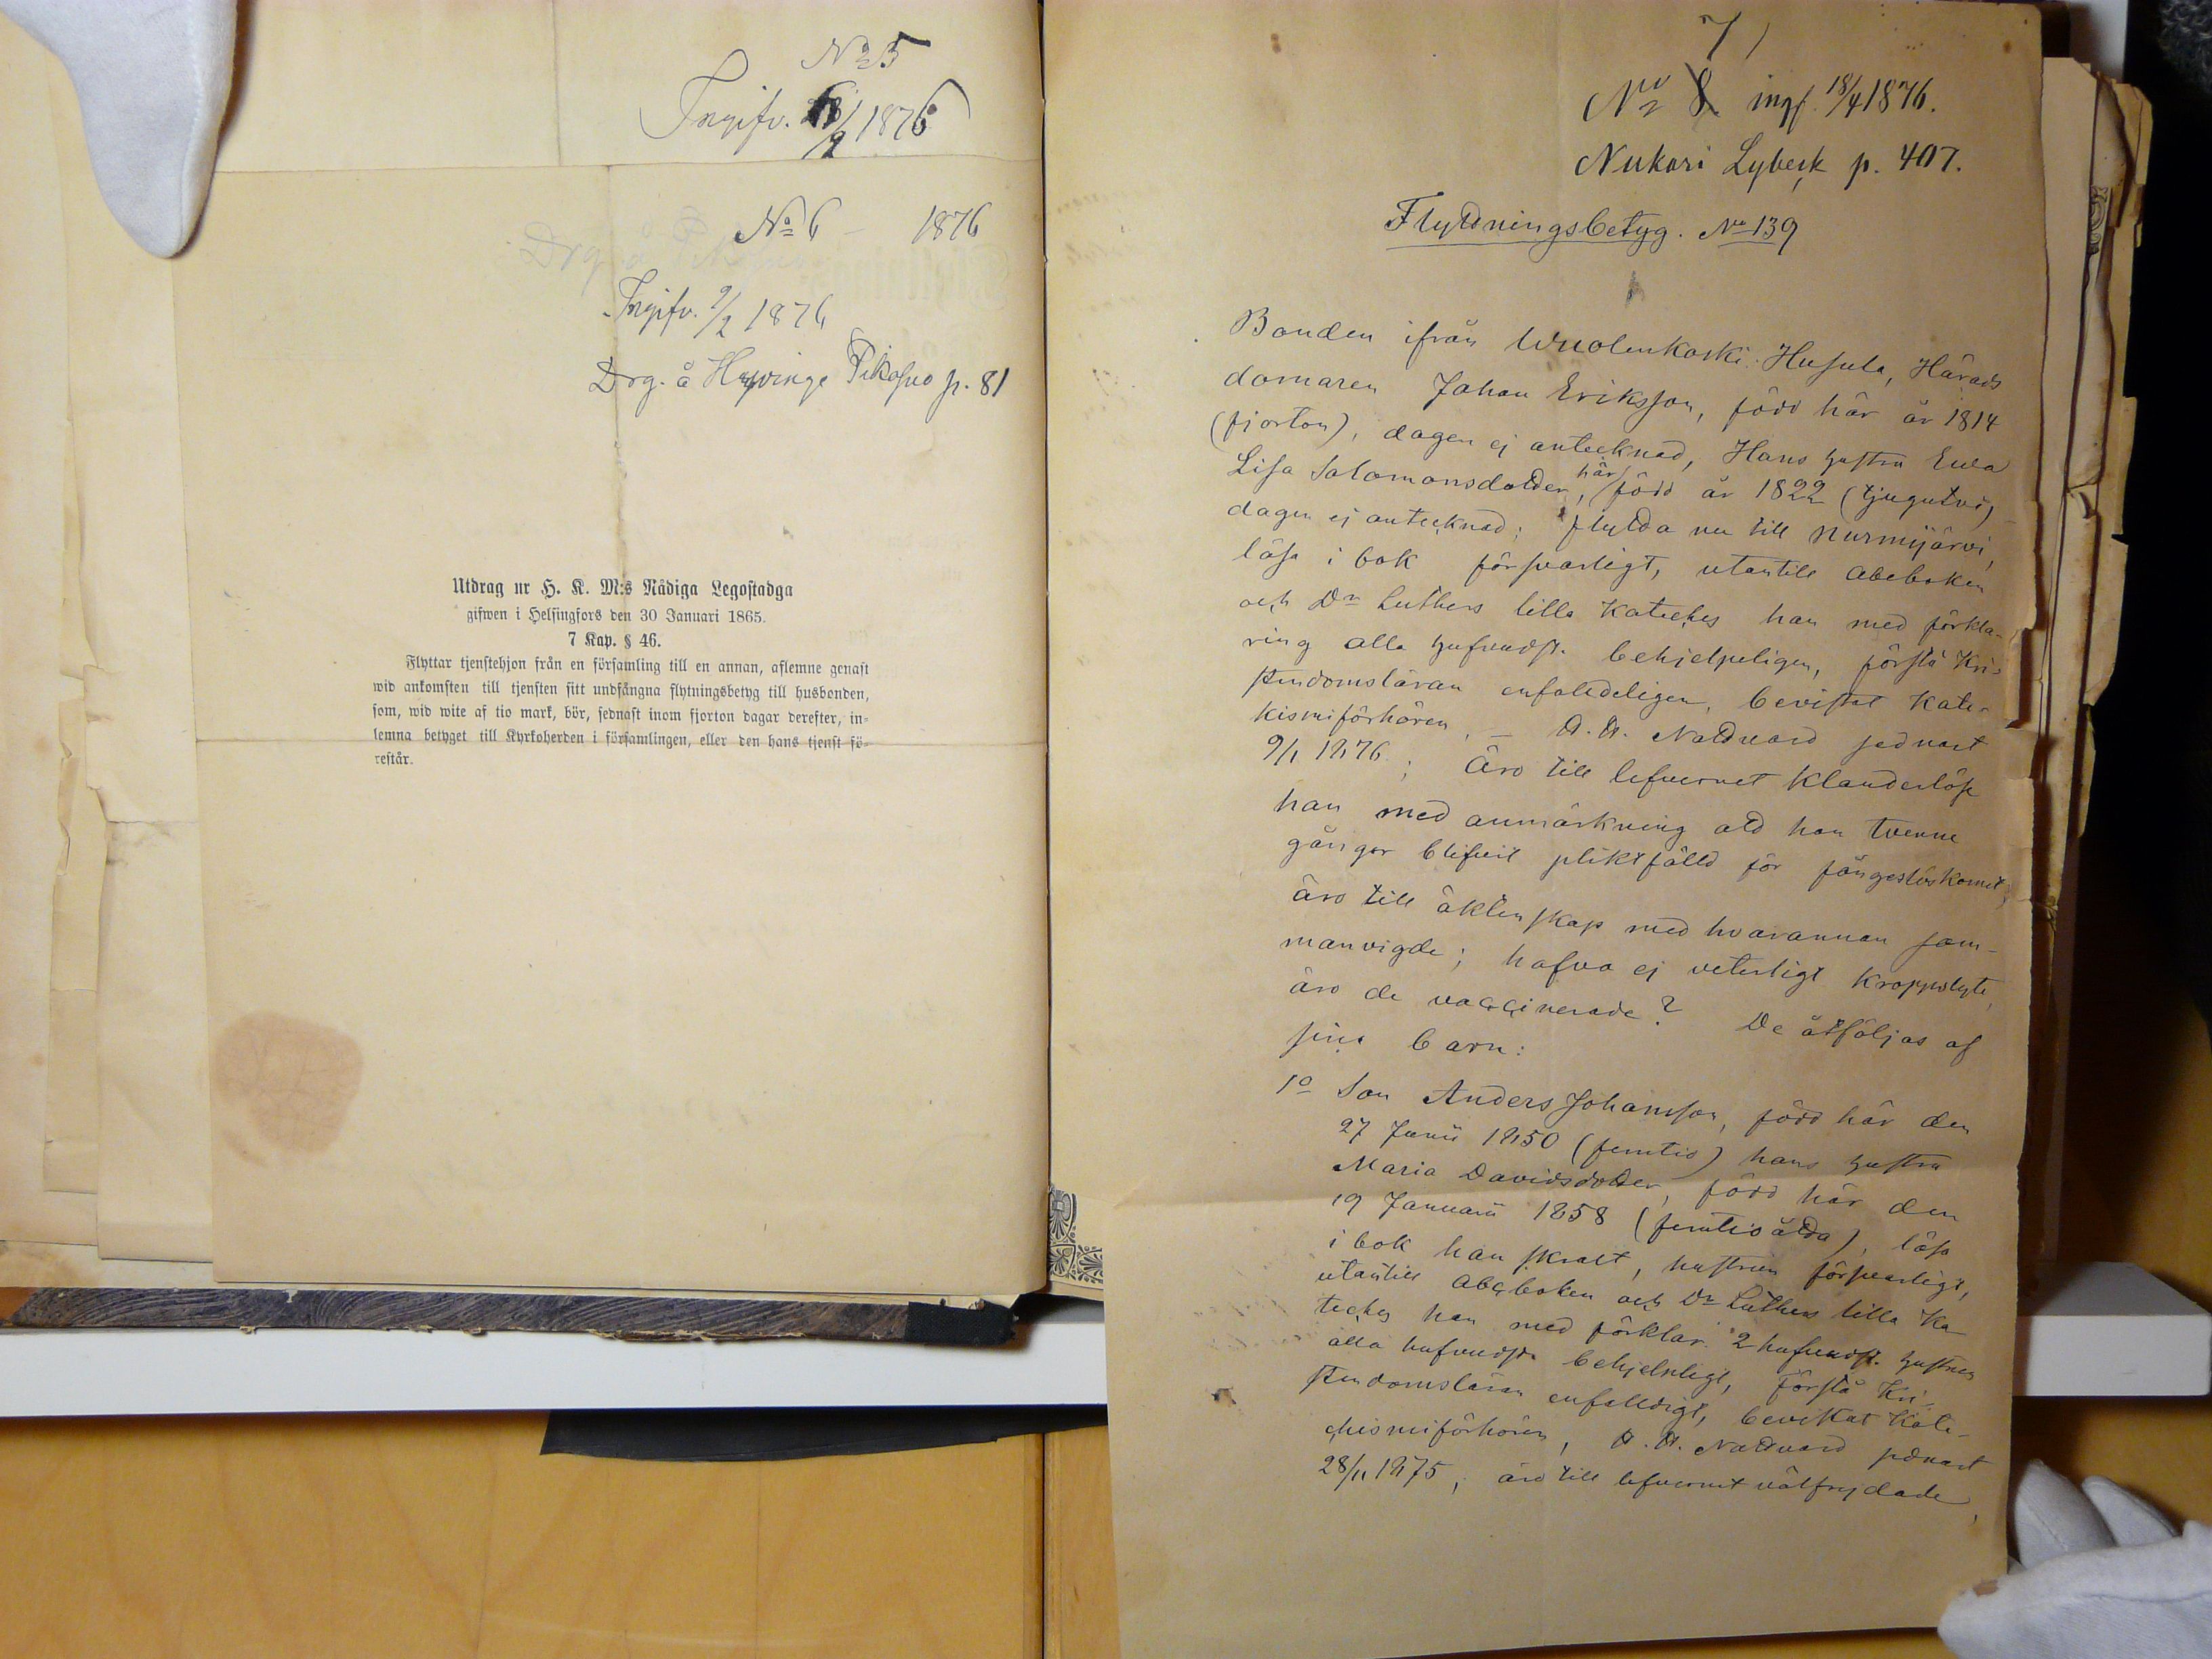 No 5
Ingifv. 1876
No 6 - 1876
Ingifv. 9/2 1876
Drg. å Hyvinge Pikasuo p. 81
Utdrag ur H. K. M:s Nådiga Legostadga
gifwen i Helsingfors den 30 Januari 1865.
7 Kap. § 46.
Flyttar tjenstehjon från en församling till en annan, aflemne genast
wid ankomsten till tjensten sitt undfångna flytningsbetyg till husbonden,
som, wid wite af tio mark, bör, sednast inom fjorton dagar derefter, in-
lemna betyget till Kyrkoherden i församlingen, eller den hans tjenst fö-
restår.
7)
No 8 ingf. 18/4 1876.
Nukari Lybeck p. 407.
Flyttningsbetyg. No 139
Bonden ifrån Wuolenkoski Husula, Härads
domaren Johan Eriksson, född här år 1814
(fjorton), dagen ej antecknad, Hans hustru Eva
Lisa Salomonsdotter, här född år 1822 (tjugutvå)
dagen ej antecknad; flytta nu till Nurmijärvi,
läsa i bok försvarligt, utantill Abcboken
och Dr Luthers lilla Kateches han med förkla-
ring alla hufvudst. behjelpeligen, förstå Kri-
stendomsläran enfaldeligen, bevistat Kate-
kismiförhören, – H. H. Nattvard sednast
9/1 1876; Äro till lefvernet klanderlöse
han med anmärkning att han tvenne
gånger blifvit pliktfälld för
äro till äktenskap med hvarannan sam-
manvigde; hafva ej veterligt kroppslyte,
äro de vaccinerade? De åtföljas af
sina barn:
1o Son Anders Johansson, född här den
27 Junii 1850 (femtio) hans hustru
Maria Davidsdotter, född här den
19 Januarii 1858 (femtioåtta), läsa
i bok han skralt, hustrun försvarligt,
utantill Abcboken och Dr Luthers lilla Ka
teches han med förklar. 2 hufvudst. hustrun
alla hufvudst. behjelpligt, Förstå Kri-
stendomsläran enfalldigt, bevistat Kate-
chismiförhören, H. H. Nattvard sednast
28/11 1875, äro till lefvernet välfrejdade,